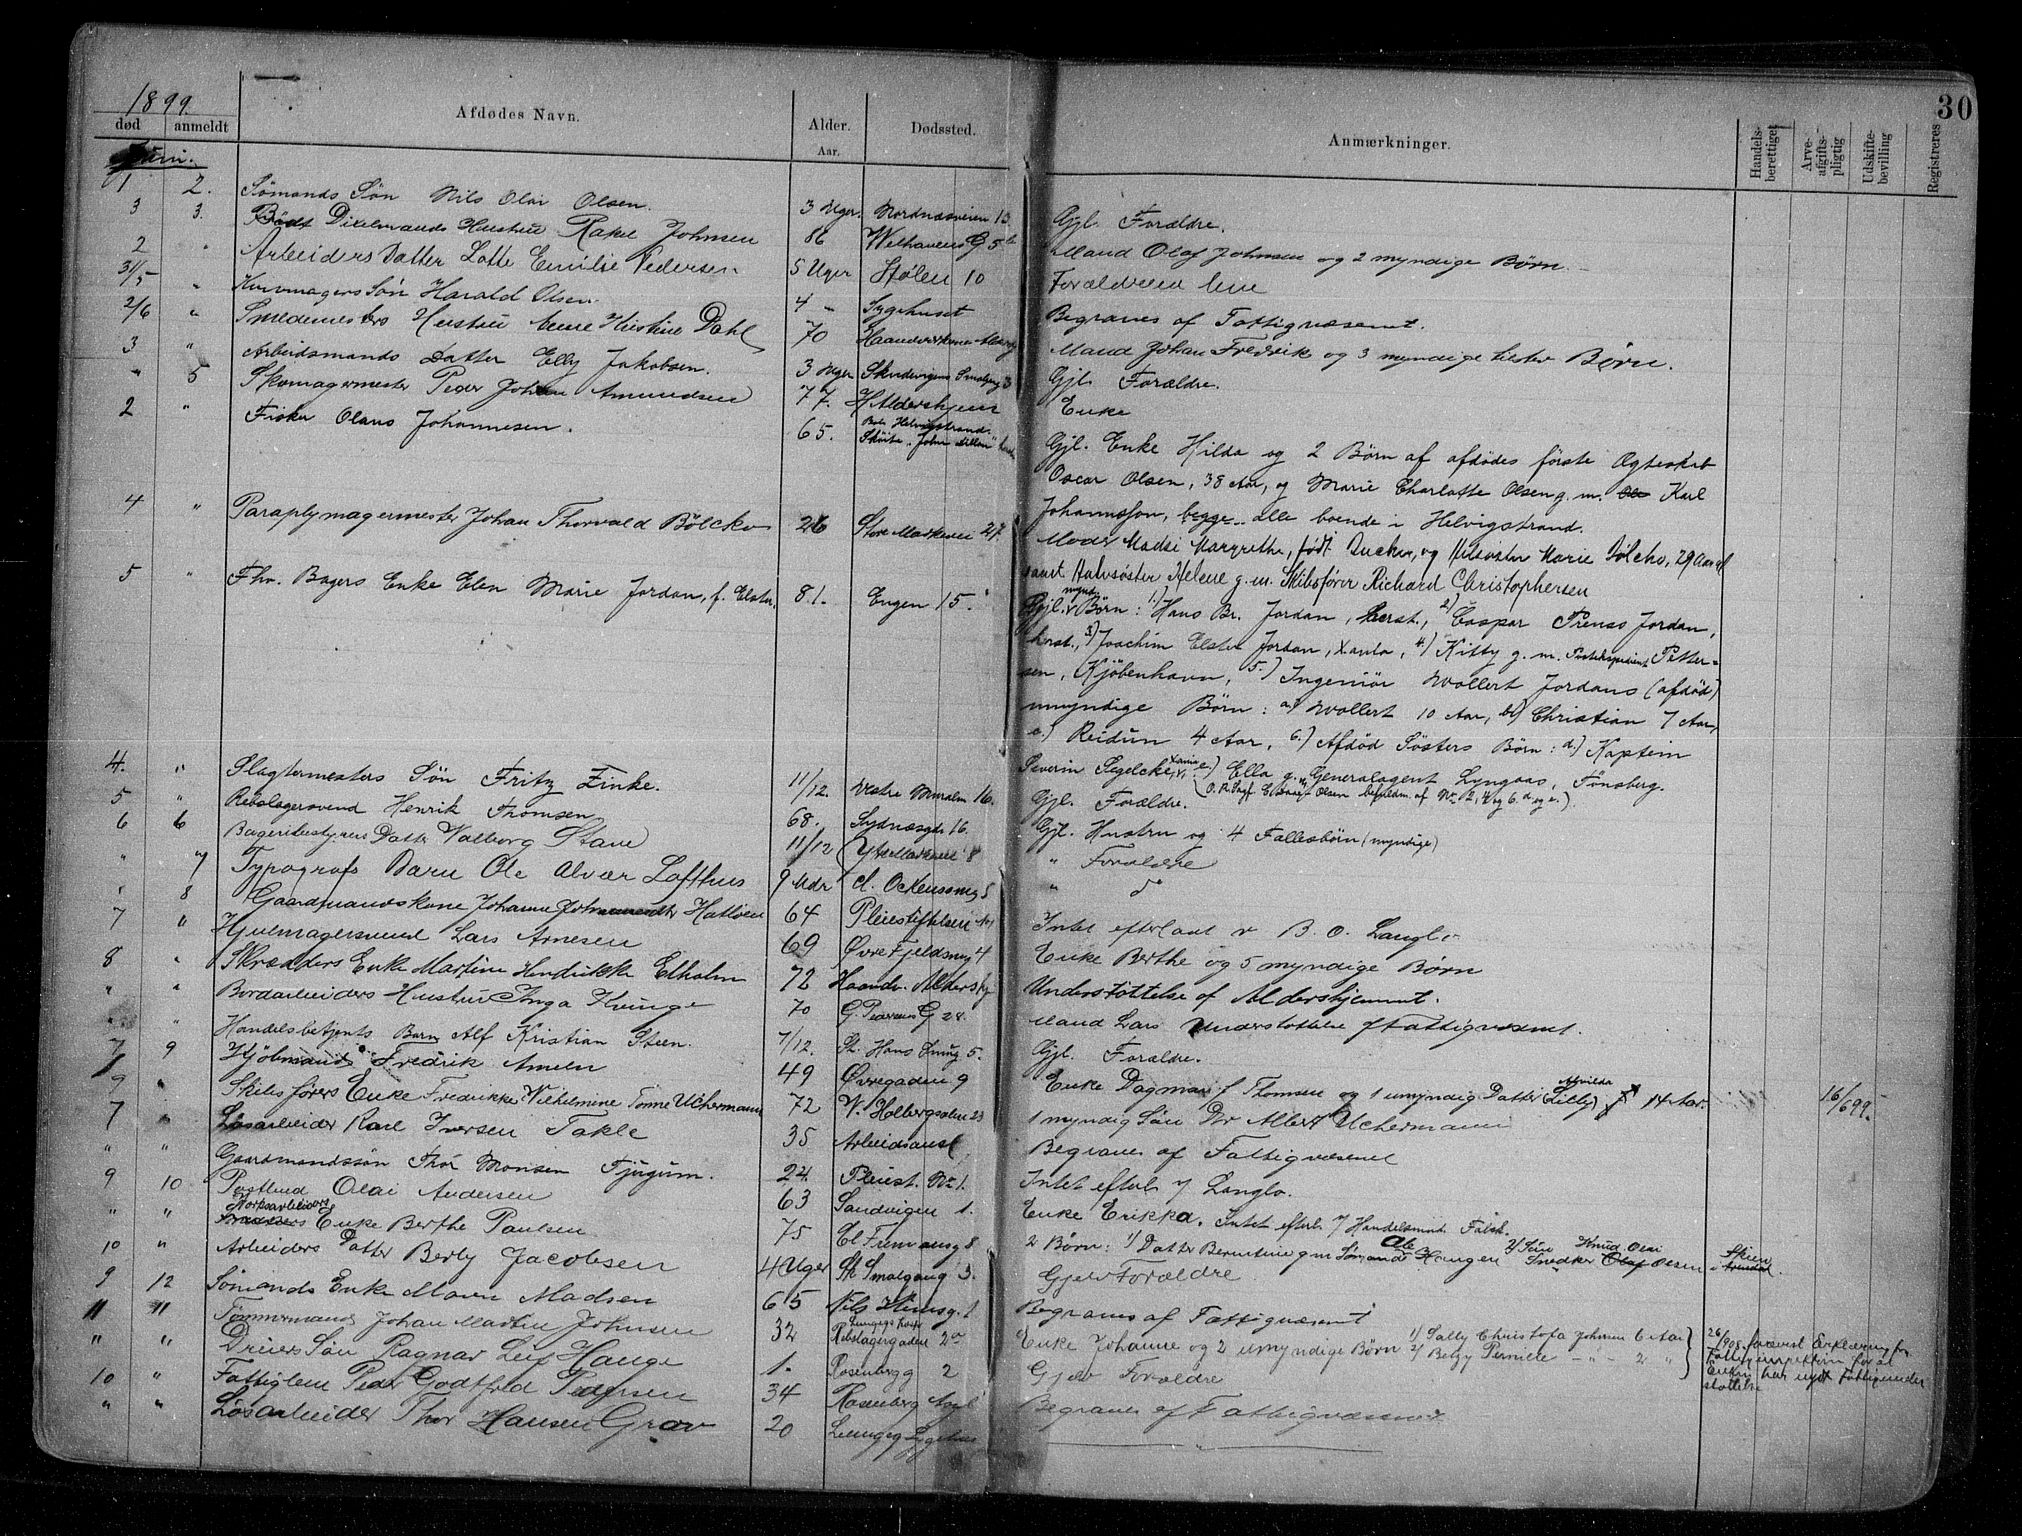 30
1899.
død anmeldt Afdødes Navn. Alder. Aar. Dødssted. Anmærkninger. Handels-berettiget Arve-afgifts-pligtig Udskifte-bevilling Registreres
Juni.
1 2. Sømands Søn Nils Olai Olsen. 3 Uger. Nordnæsveien 13 Gjl. Forældre.
3 3. Bødt Dixelmands Hustru Rakel Johnsen 86 Welhavens G 5 Mand Olaf Johnsen og 2 myndige Børn.
2 " Arbeiders Datter Lotte Emilie Pedersen. 5 Uger Stølen 10 Forældrene
31/5 " Kurvmagers Søn Harald Olsen. 4 - Sygehuset Begraves af Fattigvæsenet.
2/6 " Smedemesters Hustru Anne Kirstine Dahl 70 Haandverkernes Mand Johan Fredrik og 3 myndige Børn.
3 " Arbeidsmands Datter Elly Jakobsen. 3 Uger Skudevigens Smalgang 3 Gjl. Forældre.
" 5 Skomagermester Peder Johan Amundsen 77. H. Aldershjem Enke
2 " Fisker Olaus Johannesen. 65. Helvigstrand. Skøite "John Dillon" Gjl. Enke Hilda og 2 Børn af afdødes første Ægteskab
Oscar Olsen, 38 Aar, og Marie Charlotte Olsen g. m. Karl
Johannssen, begge alle boende i Helvigstrand.
4 " Paraplymagermester Johan Thorvald Bölcko 26 Store Markevei 27. Moder Madsi Margrethe, født og Helsøster Marie Bölcko, 29 Aar
samt Halvsøster Helene g. m. Skibsfører Richard Christophersen
5 " Fhv. Bagers Enke Elen Marie Jordan, f. Elster. 81. Engen 15. Gjl. mynd. Børn: 1) Hans Br. Jordan, herst., 2) Caspar Prenso Jordan,
herst., 3) Joachim Elster Jordan, 4) Kitty g. m. Postekspedient Petter-
sen, Kjøbenhavn, 5.) Ingeniør Wollert Jordans (afdød)
umyndige Børn: a) Wollert 10 Aar, b) Christian 7 Aar,
c.) Reidun 4 Aar, 6.) Afdød Søsters Børn: d.) Kaptein
Severin Segelcke, e.) Ella g. Generalagent Lyngaas, Tønsberg.
(O. R. Sagf. Olsen befuldm. af No 2, 4 og 6 d og e.)
4. " Slagtermesters Søn Fritz Zinke. 11/12. Vestre Muralm 16. Gjl. Forældre.
5 " Rebslagersvend Henrik Thomsen 68. Sydnæsgd. 16. Gjl. Hustru og 4 Fællesbørn (myndige)
6 6 Bageribestyrers Datter Valborg Stave 11/12 Ytre Markevei 8 " Forældre
" 7 Typografs Barn Ole Alvær Lofthus 9 Mdr d. Ockenssmug 5 " do
" 8 Gaardmandskone Johanne Hatløen 64 Pleiestiftelsen Intet efterladt v B. O. Langlo
7 " Hjulmagersvend Lars Arnesen 69 Øvre Fjeldsmug 4 Enke Berthe og 5 myndige Børn
8 " Skrædders Enke Martine Hendrikke Elholm 72 Haandv. Aldershj Understøttelse af Aldershjemmet.
" " Bordarbeiders Hustru Inga Kvinge 70 G. Pedersens G 28. Mand Lars Understøttelse af Fattigvæsenet.
" " Handelsbetjents Barn Alf Kristian Steen. 7/12. St. Hans Smug 5. Gjl. Forældre.
7 9 Kjøbmand Fredrik Ameln 49 Øvregaden 9 Enke Dagmar f Thomsen og 1 umyndig Datter Alvilda (Lilly) 14 Aar. 16/6 99.
9 " Skibsførers Enke Fredrikke Vilhelmine Tønne Uchermann 72 V. Holbergsalm 23 1 myndig Søn Dr Albert Uchermann
7 " Løsarbeider Karl Iversen Takle 35 Arbeidsanst Begraves af Fattigvæsenet
" " Gaardmandssøn Thor Monsen Fjugum. 24. Pleiest. No 1. Intet efterl. v Langlo.
9 10 Postbud Olai Andersen 63 Sandvigen 1. Enke Erikka. Intet efterl. v Handelsmnd. Falch.
" " Værksarbeiders Enke Berthe Paulsen 75 El Fremansg 8 2 Børn: 1) Datter Berntine g m Sømand Ole Haugen 2) Søn Knud Olai Snedker Olaf Olsen i Skien
10 " Arbeiders Datter Berly Jacobsen 4 Uger Sk Smalgang 3. Gjelv Forældre.
9 12 Sømands Enke Maren Madsen 65 Nils Klimsg. 1 Begraves af Fattigvæsenet
11 11 Tømmermand Johan Martin Johnsen 32 Lungegs hosp. Rebslagergaden 2a Enke Johanne og 2 umyndige Børn 1/ Sally Christofa Johnsen 6 Aar 2/ Betzy Pernille - " 2 "
26/9 08 forevist Erklæring fra Fattiginspektøren for at Enken har nydt fattigunderstøttelse
" " Dreiers Søn Ragnar Leif Hauge 1. Rosenbergg 2 Gjelv Forældre
10 " Fattiglem Peder Godtfred Pedersen 34 Rosenberg Asyl Begraves af Fattigvæsenet
" " Løsarbeider Thor Hansen Grov 20 Lungeg Sygehus